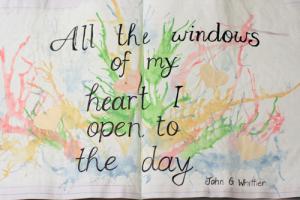 All the windows
of my
heart I
open to
the day
John G Whittier